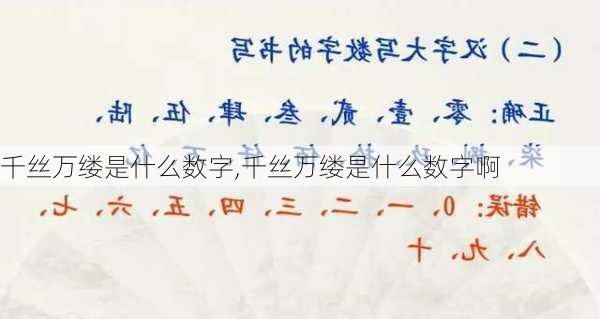 （二）汉字大写数字的书写
正确：零、壹、贰、叁、肆、伍、陆、
柒、捌、玖、拾、佰、仟、万、亿
千丝万缕是什么数字,千丝万缕是什么数字啊
错误：0、一、二、三、四、五、六、七、
八、九、十